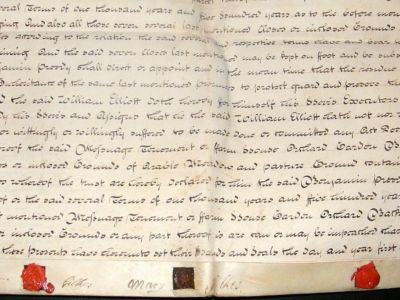 several Terms of one thousand years and five hundred years as to the before men
ning And also all those seven several last mentioned Closes or inclosed Grounds
es according to the relation the said several respective terms have and bear to
ning And the said seven Closes last mentioned may be kept on foot and be subs
njamin Proctor shall direct or appoint and in the mean time that the residue
Inheritance of the same last mentioned premisses to protect guard and preserve th
d the said William Elliott doth hereby for himself his Heirs Executors
by his Heirs and Assigns that he the said William Elliott hath not nor
or wittingly or willingly suffered to be made done or committed any Act Deed
reof the said Messuage Tenement or farm House Orchard Garden
s or inclosed Grounds of Arable Meadow and pasture Ground contain
s whereof the trust are hereby declared for him the said Benjamin Proctor
t or the said several Terms of one thousand years and five hundred years
t mentioned Messuage Tenement or farm House Garden Orchard
or inclosed Grounds or any part thereof is are can or may be impeached char
these Presents have hereunto set their Hands and Seals the day and year first